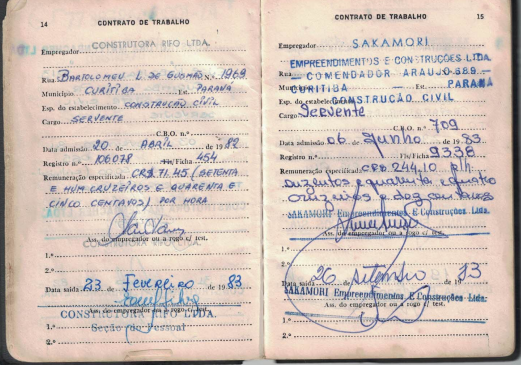 14
CONTRATO DE TRABALHO
Empregador
CONSTRUTORA RIFO LTDA.
Rua BARTOLOMEU L DE GUSMÃO N.º 1969
Município CURITIBA Est. PARANÁ
Esp. do estabelecimento CONSTRUÇÃO CIVIL
Cargo SERVENTE
C.B.O. n.º
Data admissão 20 de ABRIL de 1982
Registro n.º 106078 Fls/Ficha 454
Remuneração especificada CR$ 71.45 (SETENTA
E HUM CRUZEIROS E QUARENTA E
CINCO CENTAVOS) POR HORA
Ass. do empregador ou a rogo c/ test.
1.º
2.º
Data saída 23 de Fevereiro de 1983
Ass. do empregador ou a rogo c/ test.
CONSTRUTORA RIFO LTDA.
1.º
Seção de Pessoal
2.º
CONTRATO DE TRABALHO
15
Empregador SAKAMORI
EMPREENDIMENTOS E CONSTRUÇÕES LTDA.
Rua COMENDADOR ARAUJO 689
Município CURITIBA Est. PARANÁ
Esp. do estabelecimento CONSTRUÇÃO CIVIL
Cargo Servente
C.B.O. n.º 709
Data admissão 06 de Junho de 1983
Registro n.º Fls/Ficha 9338
Remuneração especificada CR$ 244,10 p/h
duzentos e quarenta e quatro
cruzeiros e dez centavos
SAKAMORI Empreendimentos E Construções Ltda.
Ass. do empregador ou a rogo c/ test.
1.º
2.º
Data saída 26 de setembro de 1983
SAKAMORI Empreendimentos E Construções Ltda.
Ass. do empregador ou a rogo c/ test.
1.º
2.º